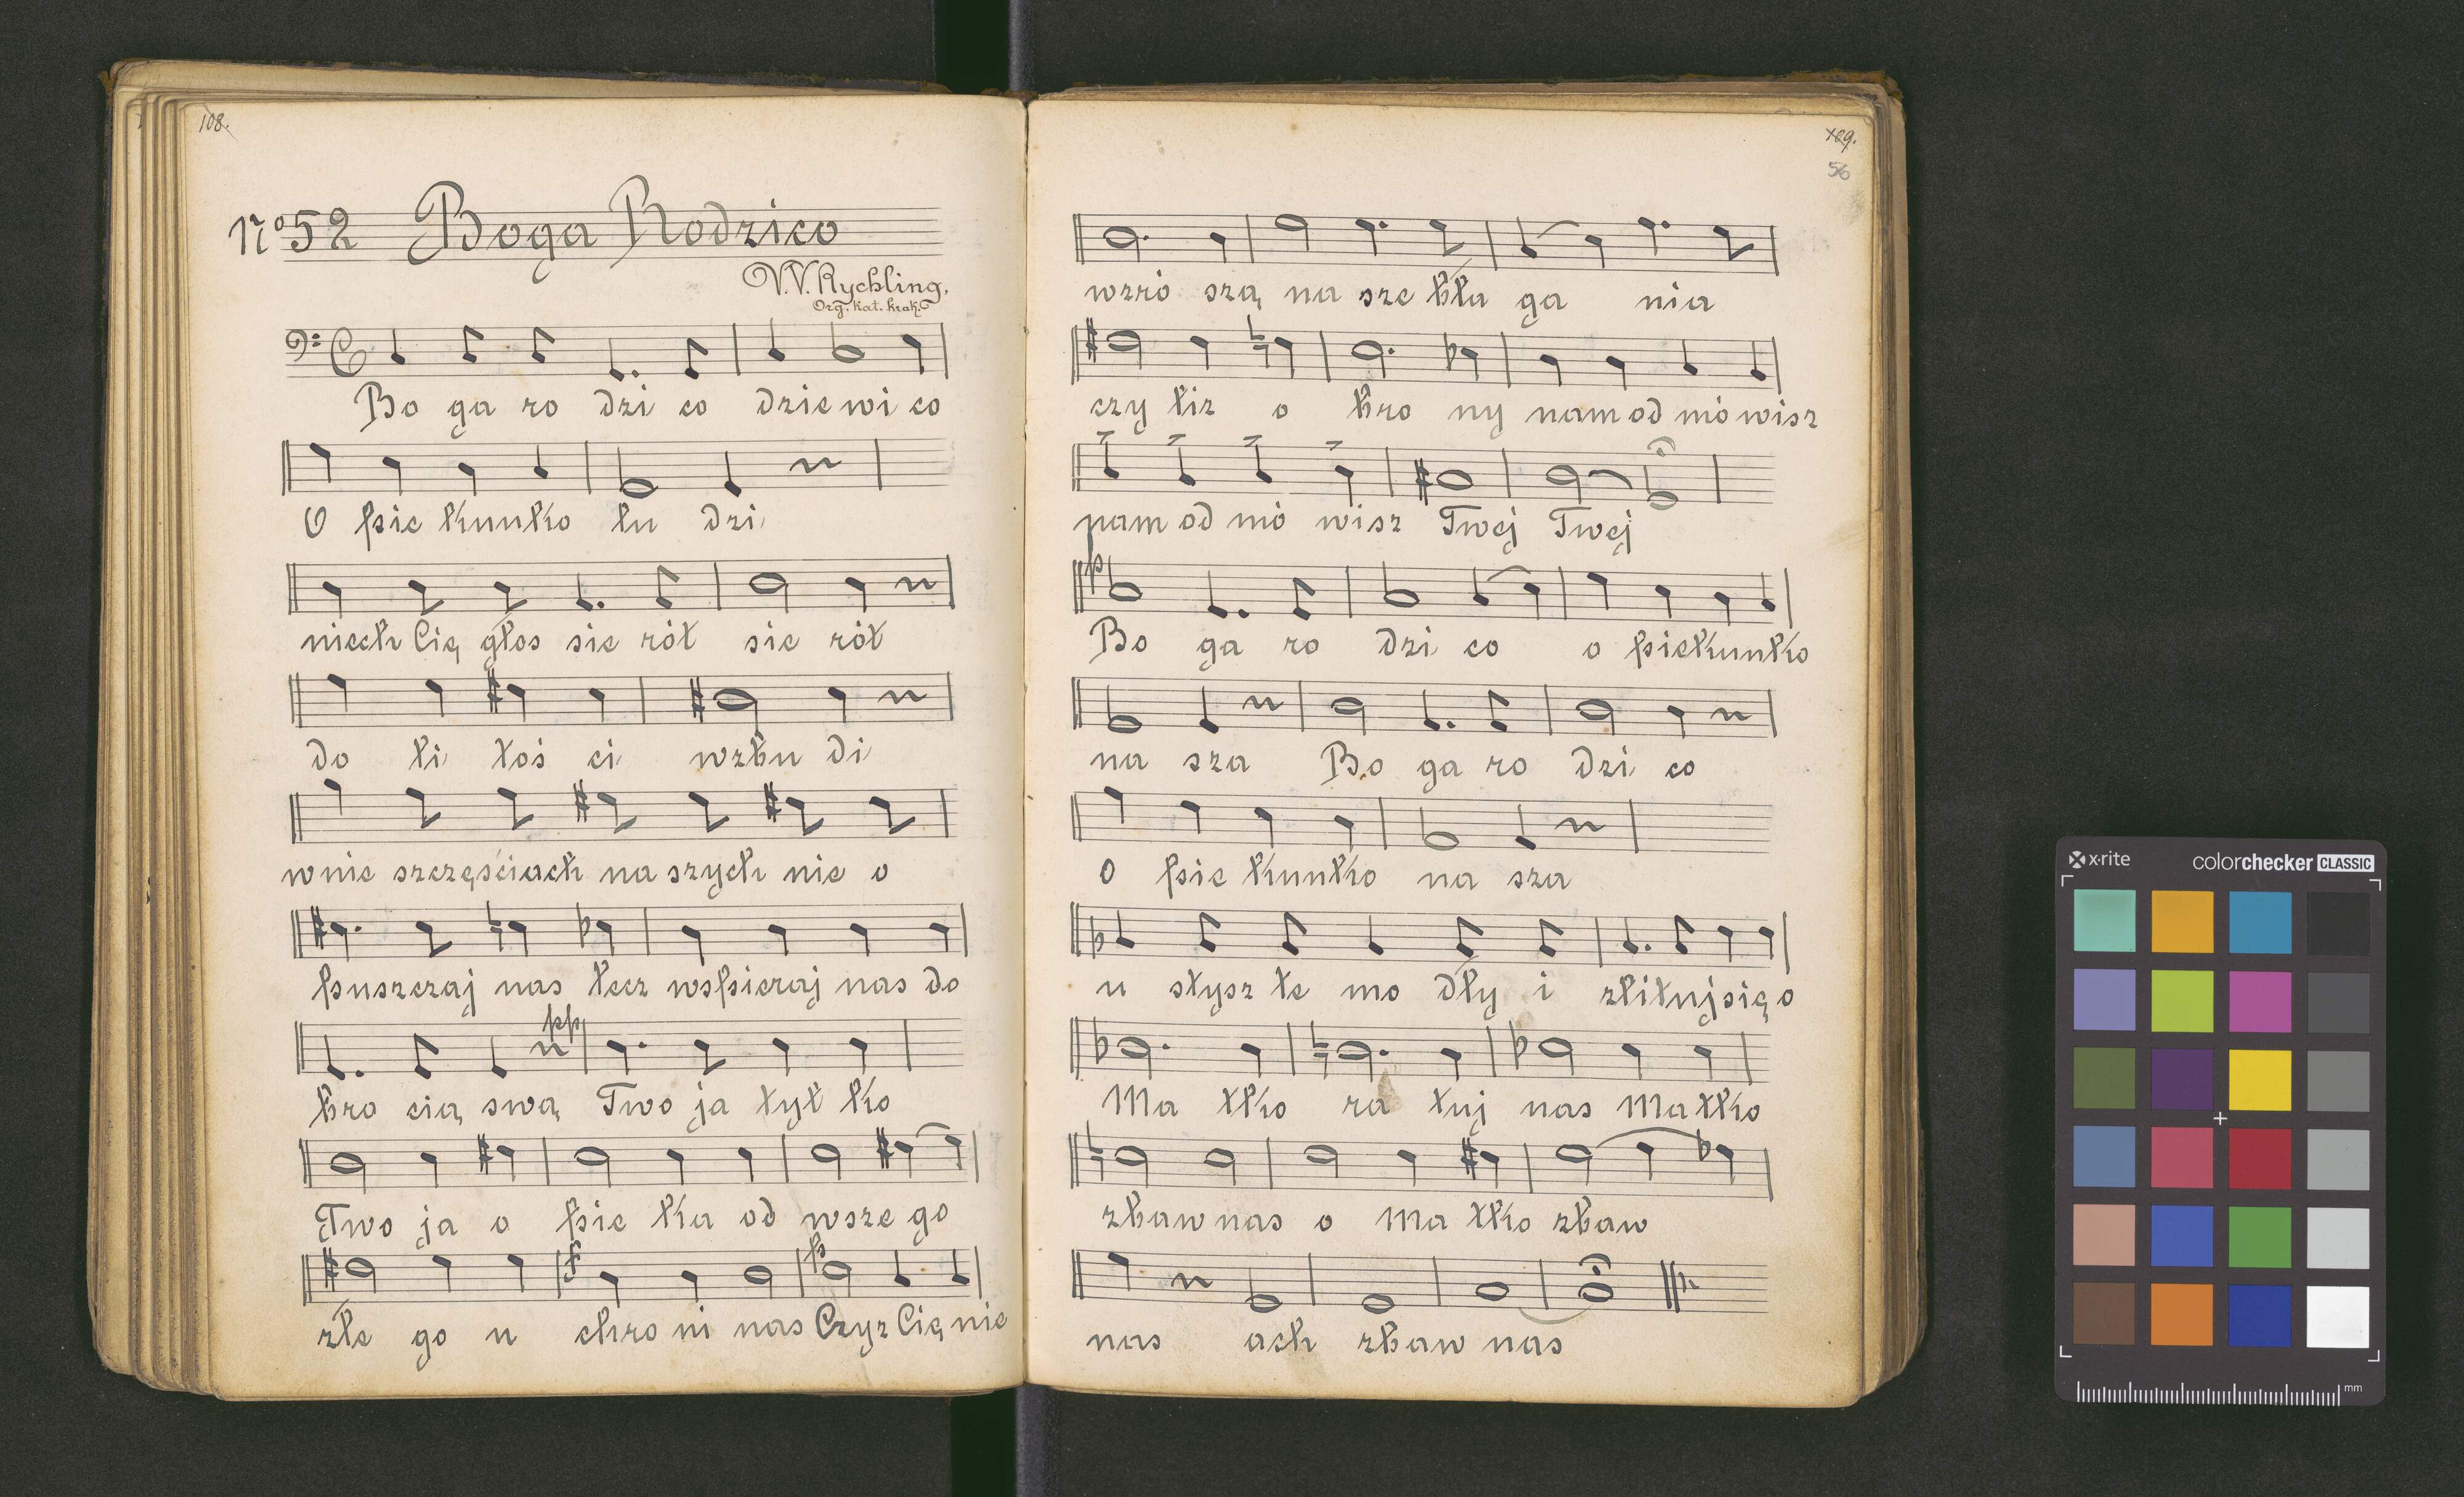 108.
No 52 Boga Rodzico
W. Rychling.
Org. kat. krak.
Bo ga ro dzi co dzie wi co
O pie kunko lu dzi
niech Cię głos sie rót sie rót
do li toś ci wzbu di
w nie szczęściach na szych nie o
puszczaj nas lecz wspieraj nas do
pp
bro cią swą Two ja tyl ko
Two ja o pie ka od wsze go
f p
złe go u chro ni nas Czyż Cię nie
109.
56
wzró szą na sze bła ga nia
czy liż o bro ny nam od mó wisz
nam od mó wisz Twej Twej
p
Bo ga ro dzi co o piekunko
na sza Bo ga ro dzi co
o pie kunko na sza
u słysz te mo dły i zlituj się o
Ma tko ra tuj nas Ma tko
zbaw nas o Ma tko zbaw
nas ach zbaw nas
x-rite colorchecker CLASSIC
mm